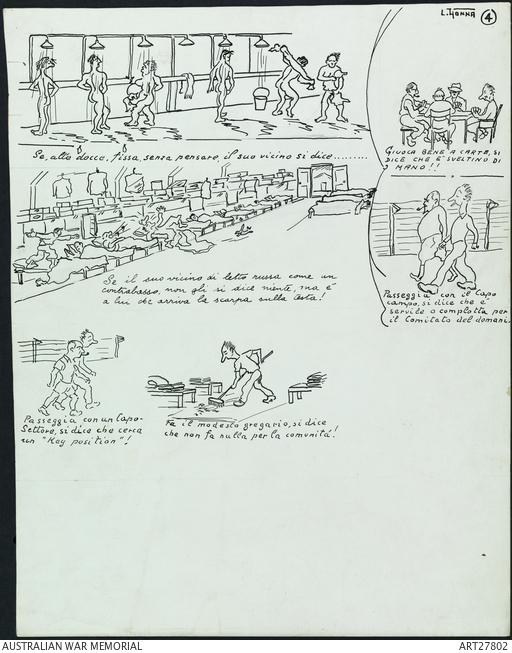 L. Hanna
4
Se, alla docce, fissa, senza pensare, il suo vicino si dice.........
GIUOCA BENE A CARTE, SI
DICE CHE E' SVELTINO DI
MANO!!
Se il suo vicino di letto russa come un
contrabasso, non gli si dice niente, ma è
a lui che arriva la scarpa sulla testa!
Passeggia con il Capo
campo, si dice che è
servile o complotta per
il Comitato del domani.
Passeggia con un Capo-
Settore, si dice che cerca
un "Key position"!
Fa il modesto gregario, si dice
che non fa nulla per la comunità!
AUSTRALIAN WAR MEMORIAL
ART27802